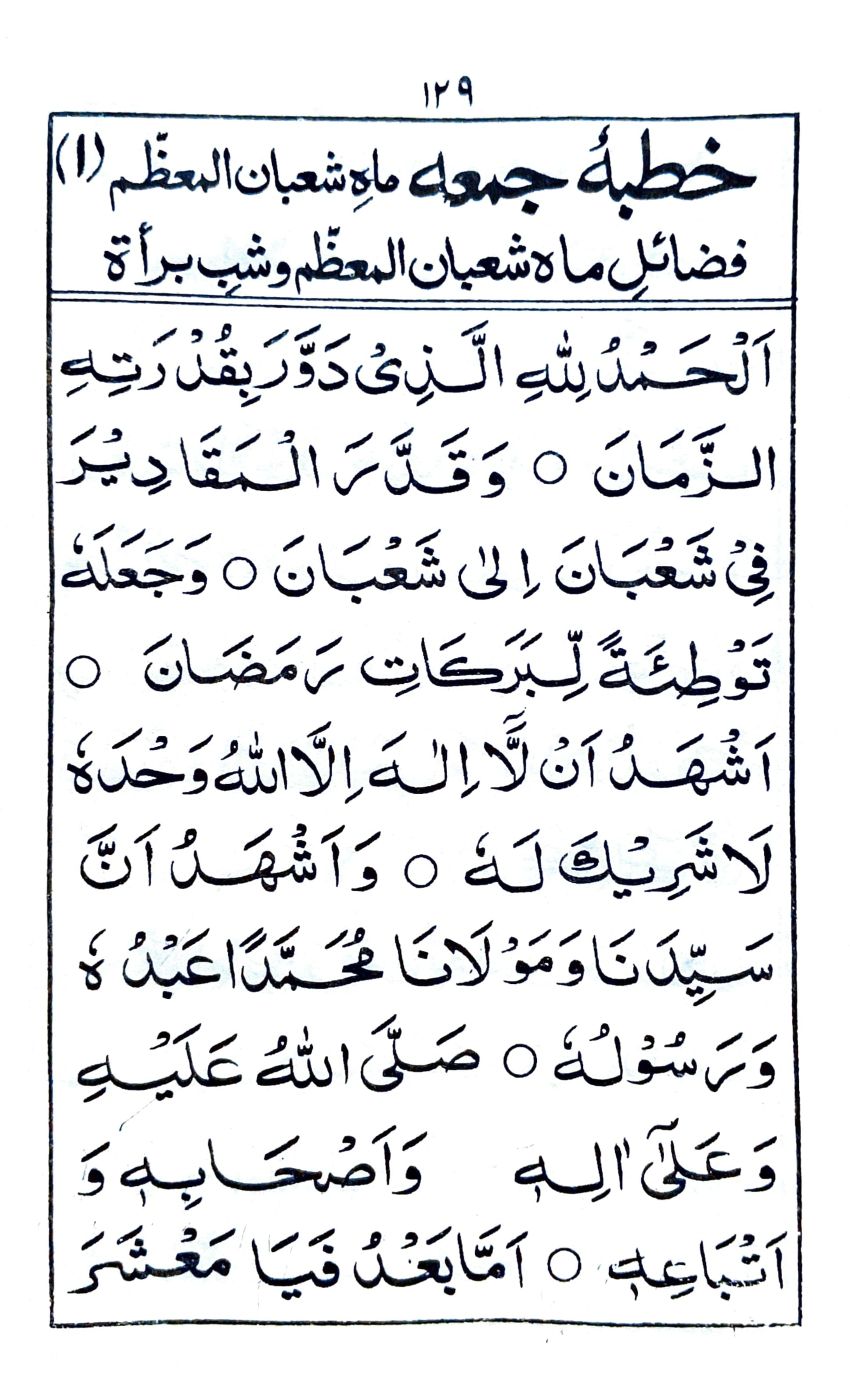 ۱۲۹
خطبۂ جمعہ ماہِ شعبان المعظّم (۱)
فضائلِ ماہ شعبان المعظّم و شبِ برأۃ
اَلْحَمْدُ لِلّٰهِ الَّذِیْ دَوَّرَ بِقُدْرَتِهِ
الزَّمَانَ ○ وَقَدَّرَ الْمَقَادِیْرَ
فِیْ شَعْبَانَ اِلٰی شَعْبَانَ ○ وَجَعَلَهٗ
تَوْطِئَةً لِّبَرَكَاتِ رَمَضَانَ ○
اَشْهَدُ اَنْ لَّا اِلٰهَ اِلَّا اللّٰهُ وَحْدَهٗ
لَا شَرِیْكَ لَهٗ ○ وَاَشْهَدُ اَنَّ
سَیِّدَنَا وَمَوْلَانَا مُحَمَّدًا عَبْدُهٗ
وَرَسُوْلُهٗ ○ صَلَّی اللّٰهُ عَلَیْهِ
وَعَلٰۤی اٰلِهٖ وَاَصْحَابِهٖ وَ
اَتْبَاعِهٖ ○ اَمَّا بَعْدُ فَیَا مَعْشَرَ